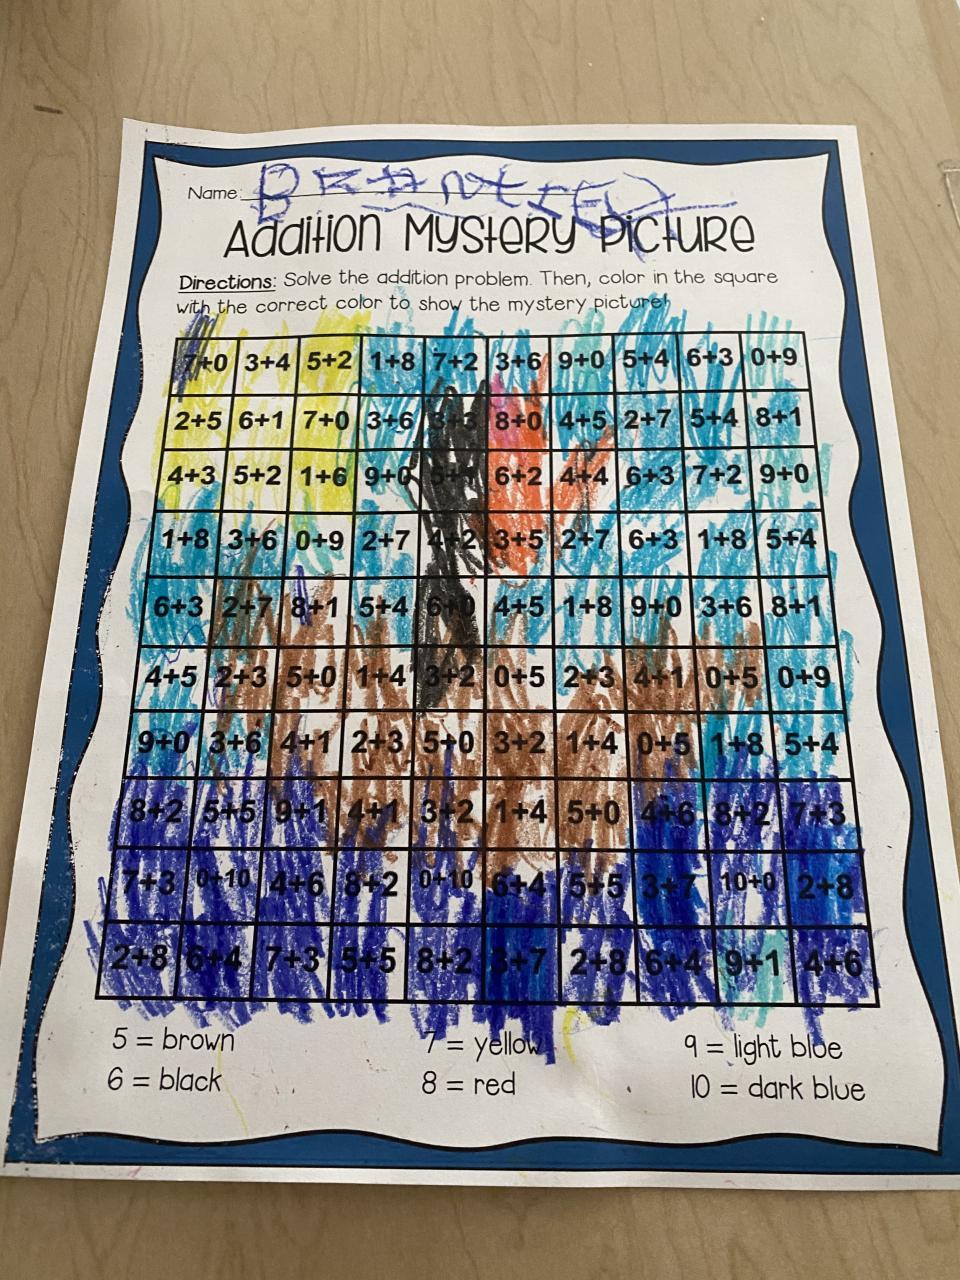 Name:
Addition Mystery Picture
Directions: Solve the addition problem. Then, color in the square
with the correct color to show the mystery picture!
7+0 3+4 5+2 1+8 7+2 3+6 9+0 5+4 6+3 0+9
2+5 6+1 7+0 3+6 3+3 8+0 4+5 2+7 5+4 8+1
4+3 5+2 1+6 9+0 5+1 6+2 4+4 6+3 7+2 9+0
1+8 3+6 0+9 2+7 4+2 3+5 2+7 6+3 1+8 5+4
6+3 2+7 8+1 5+4 6+0 4+5 1+8 9+0 3+6 8+1
4+5 2+3 5+0 1+4 3+2 0+5 2+3 4+1 0+5 0+9
9+0 3+6 4+1 2+3 5+0 3+2 1+4 0+5 1+8 5+4
8+2 5+5 9+1 4+1 3+2 1+4 5+0 4+6 8+2 7+3
7+3 0+10 4+6 8+2 0+10 6+4 5+5 3+7 10+0 2+8
2+8 6+4 7+3 5+5 8+2 3+7 2+8 6+4 9+1 4+6
5 = brown 7 = yellow 9 = light blue
6 = black 8 = red 10 = dark blue